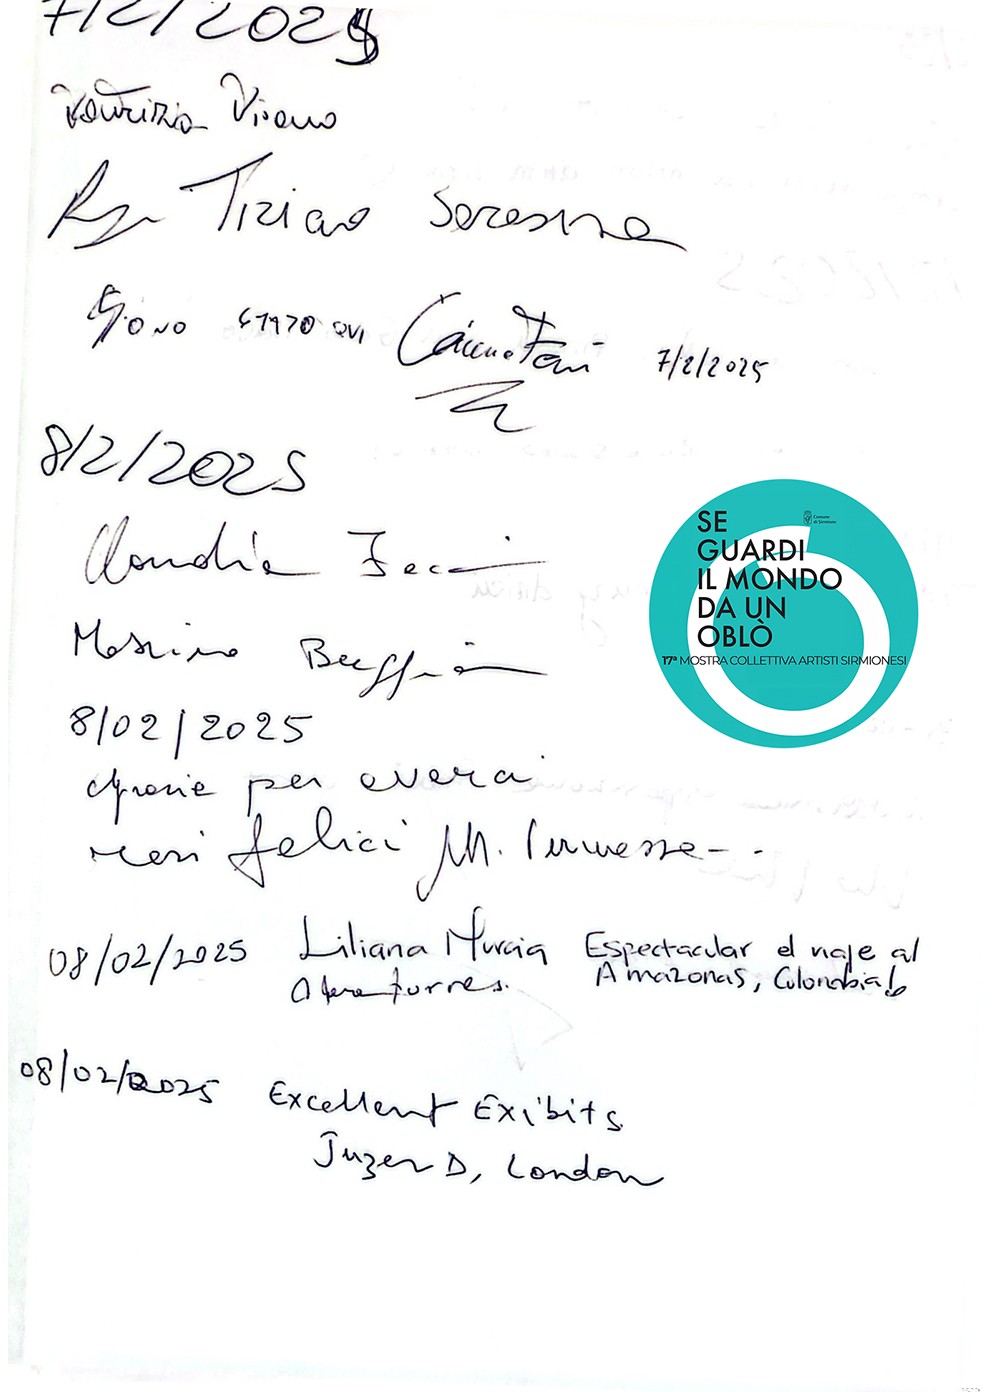 7/2/2025
Tiziano
Sono stato qui 7/2/2025
8/2/2025
SE
GUARDI
IL MONDO
DA UN
OBLÒ
Comune
di Sirmione
17ª MOSTRA COLLETTIVA ARTISTI SIRMIONESI
Claudia
Massimo
8/02/2025
Grazie per averci
resi felici M.
08/02/2025 Liliana Murcia Espectacular el viaje al
torres. Amazonas, Colombia!
08/02/2025 Excellent Exibits
Juzer D, London